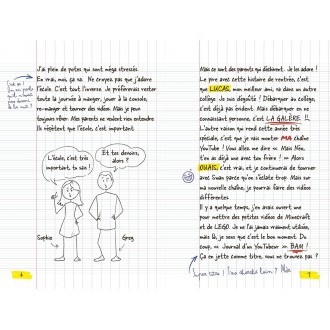 J'ai plein de potes qui sont méga stressés.
En vrai, moi, ça va. Ne croyez pas que j'adore
l'école. C'est tout l'inverse. Je préférerais rester
toute la journée à manger, jouer à la console,
re-manger et tourner des vidéos. Mais je peux
toujours rêver. Mes parents ne veulent rien entendre.
Ils répètent que l'école, c'est important.
L'école, c'est très
important, tu sais !
Et tes devoirs,
alors ?
Sophie
Greg
6
Mais ce sont des parents qui décident. Je les adore !
Le pire avec cette histoire de rentrée, c'est
que LUCAS, mon meilleur ami, va dans un autre
collège. Je suis dégoûté ! Débarquer au collège,
c'est déjà dur, mais y débarquer en ne
connaissant personne, c'est LA GALÈRE !!
L'autre raison qui rend cette année très
spéciale, c'est que je vais monter MA chaîne
YouTube ! Vous allez me dire « Mais Néo,
t'en as déjà une avec ton frère ! » Alors
OUAIS, c'est vrai, et je continuerai de tourner
avec Swan parce qu'on s'éclate trop. Mais sur
ma nouvelle chaîne, je pourrai faire des vidéos
différentes.
Il y a quelque temps, j'en avais ouvert une
pour mettre des petites vidéos de Minecraft
et de LEGO. Je ne l'ai jamais vraiment utilisée,
mais là, je sens que c'est le bon moment. Du
coup, « Journal d'un YouTubeur » BAM !
Ça en jette comme titre, vous ne trouvez pas ?
7